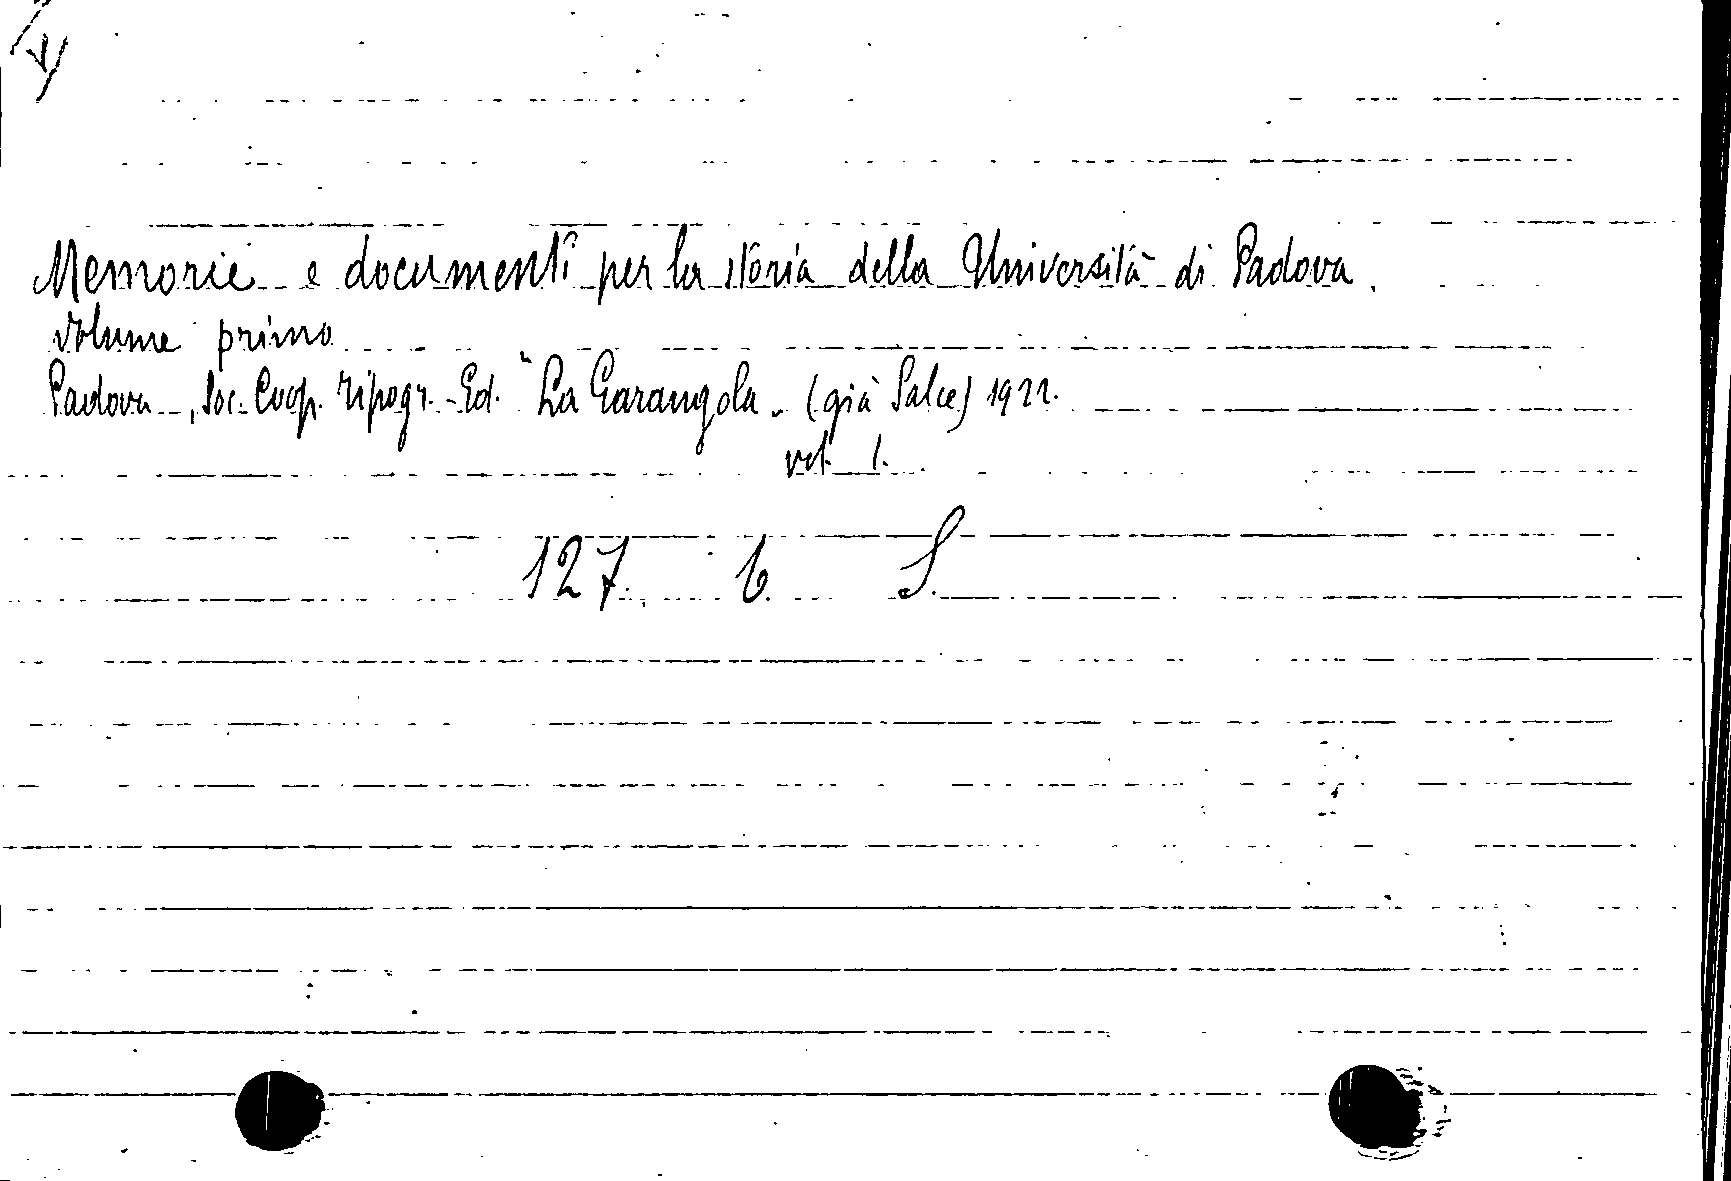 Memorie e documenti per la storia della Università di Padova.
volume primo
Padova, Soc. Coop. Tipogr. Ed. "La Garangola" (già Salce) 1922.
vol. 1.
127 b S.